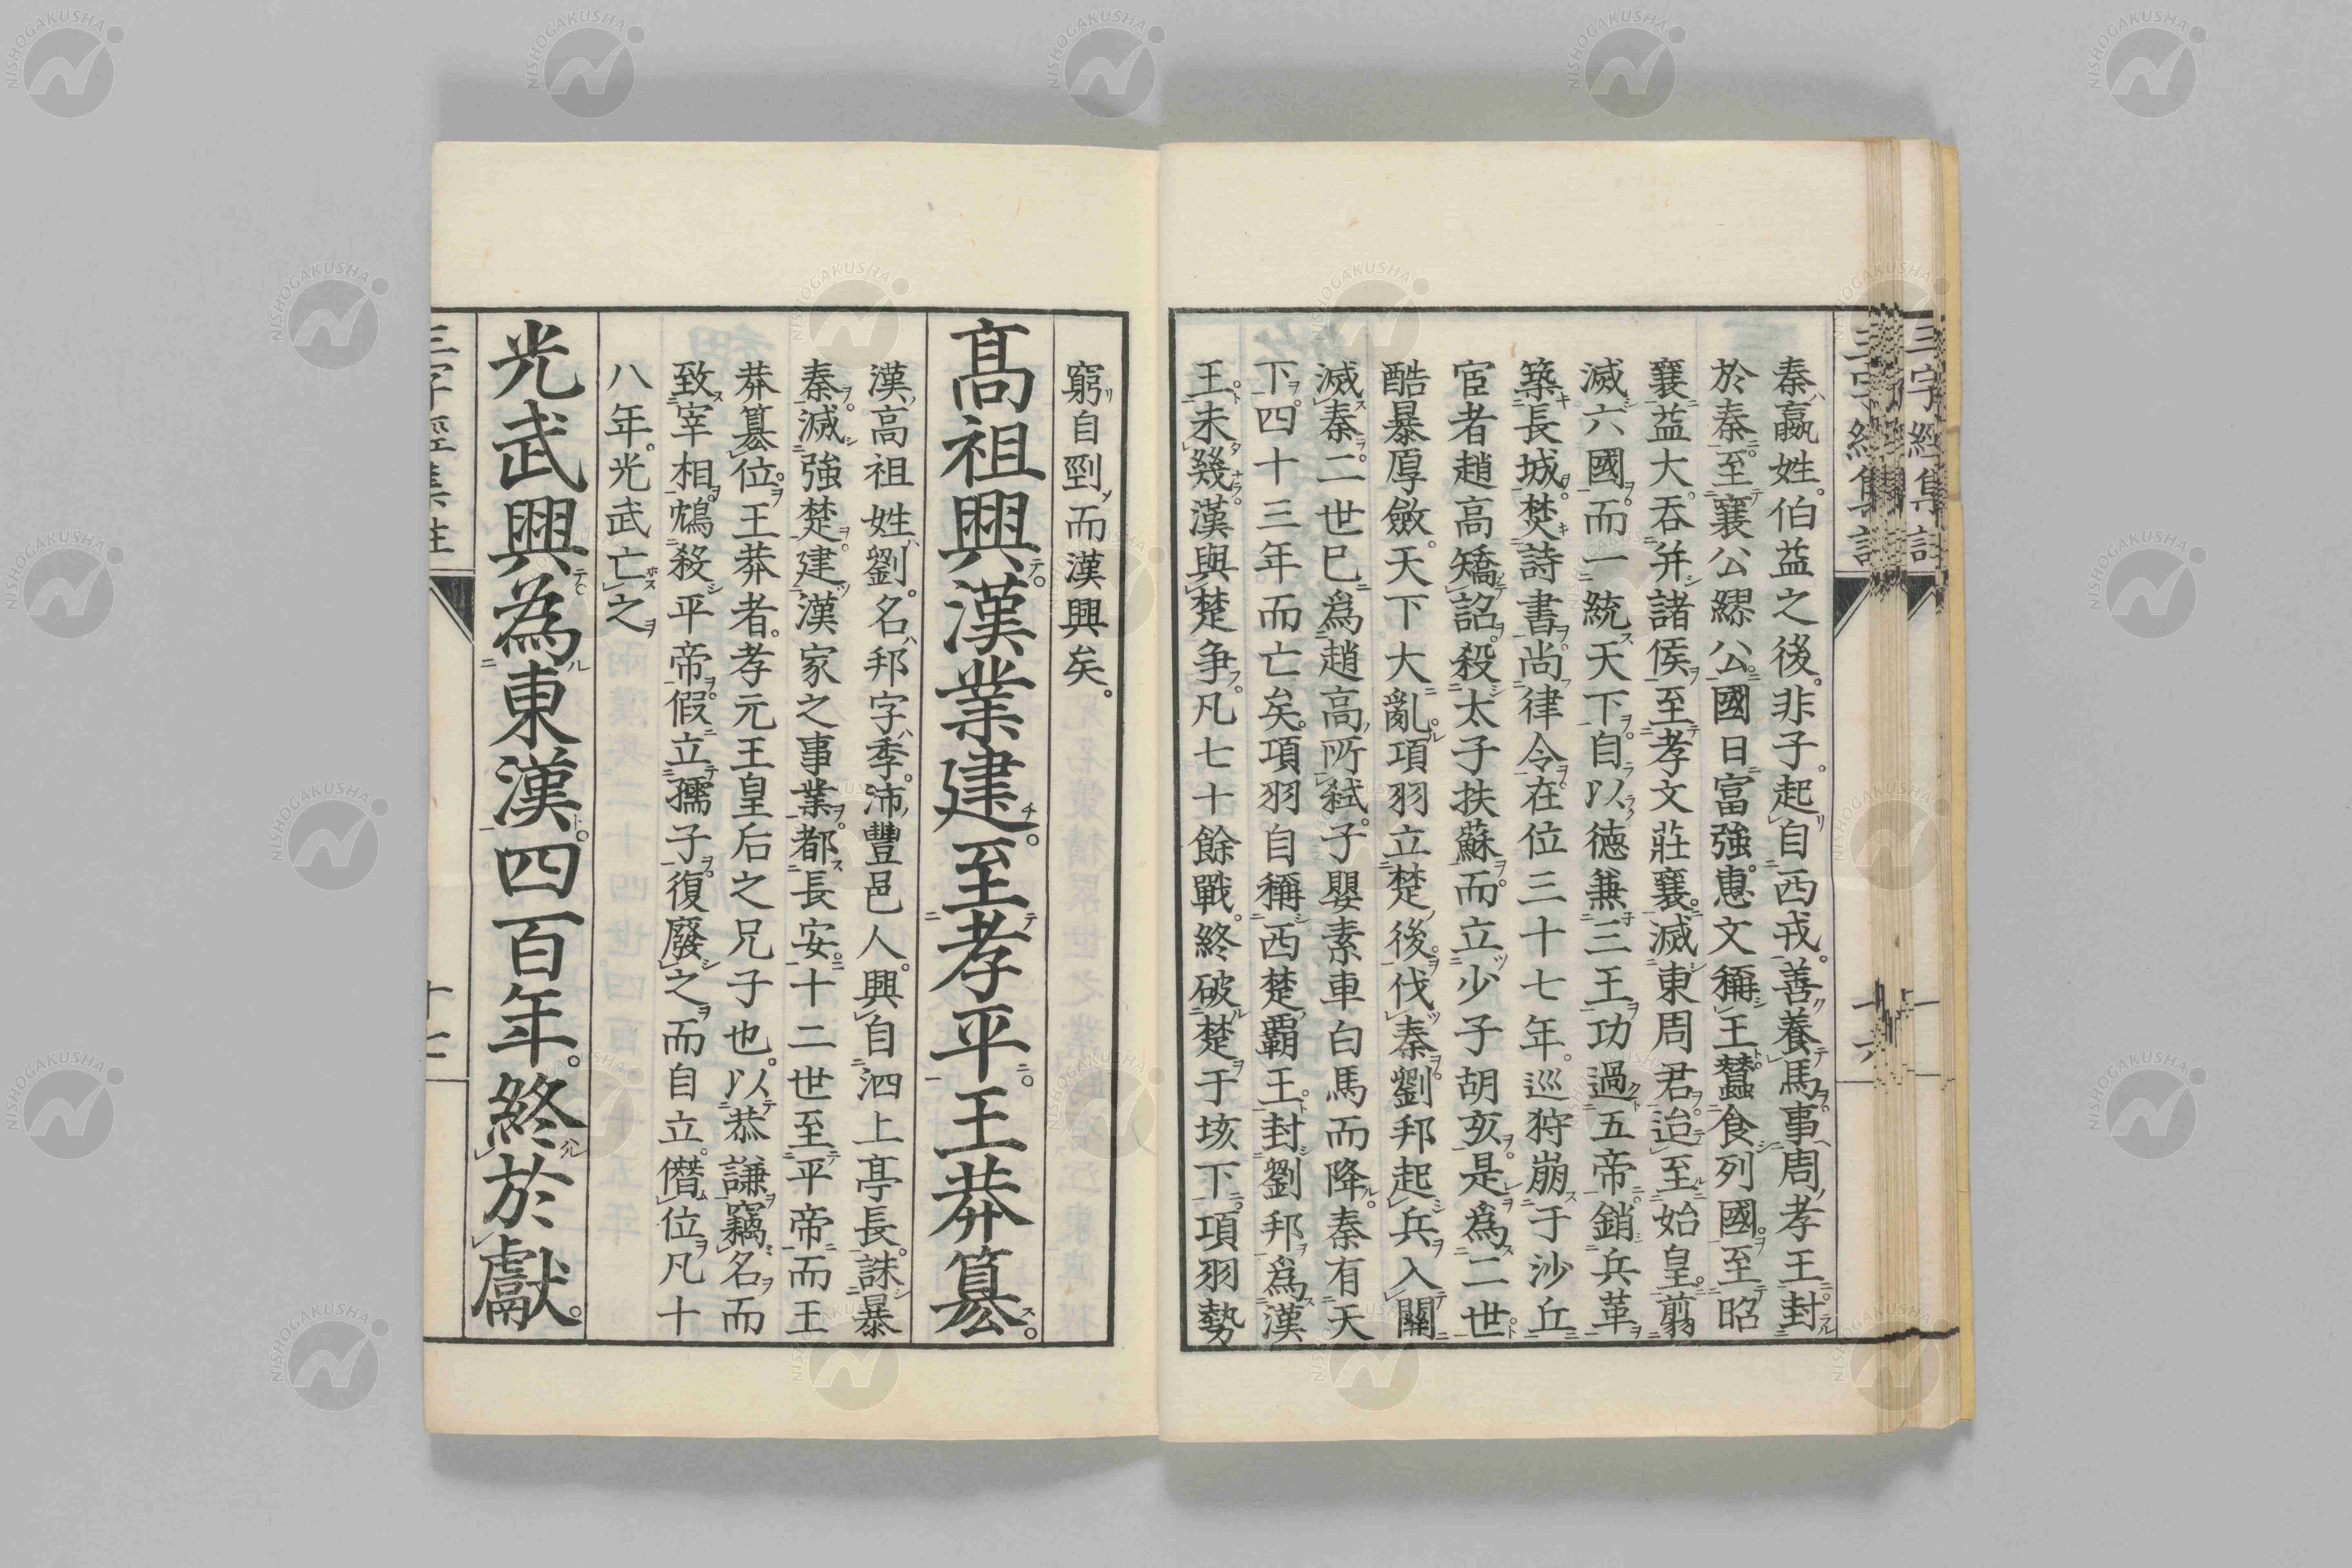 秦嬴姓。伯益之後。非子。起自西戎。善養馬。事周孝王。封
於秦。至襄公繆公。國日富強。惠文稱王。蠶食列國。至昭
襄益大。吞并諸侯。至孝文莊襄。滅東周君。迨至始皇。翦
滅六國。而一統天下。自以德兼三王。功過五帝。銷兵革
築長城。焚詩書。尚律令。在位三十七年。巡狩崩于沙丘
宦者趙高矯詔。殺太子扶蘇。而立少子胡亥。是為二世
酷暴厚斂。天下大亂。項羽立楚後。伐秦。劉邦起兵入關
滅秦。二世已為趙高所弑。子嬰素車白馬而降。秦有天
下。四十三年而亡矣。項羽自稱西楚覇王。封劉邦為漢
王。未幾。漢與楚争。凡七十餘戰。終破楚于垓下。項羽勢
窮自剄。而漢興矣。
髙祖興。漢業建。至孝平。王莽篡。
漢高祖姓劉。名邦字季。沛豐邑人。興自泗上亭長。誅暴
秦。滅強楚。建漢家之事業。都長安。十二世至平帝。而王
莽篡位。王莽者。孝元王皇后之兄子也。以恭謙竊名。而
致宰相。鴆殺平帝。假立孺子。復廢之。而自立。僭位凡十
八年。光武亡之
光武興。為東漢。四百年。終於獻。
三字經集註
十七
NISHOGAKUSHA